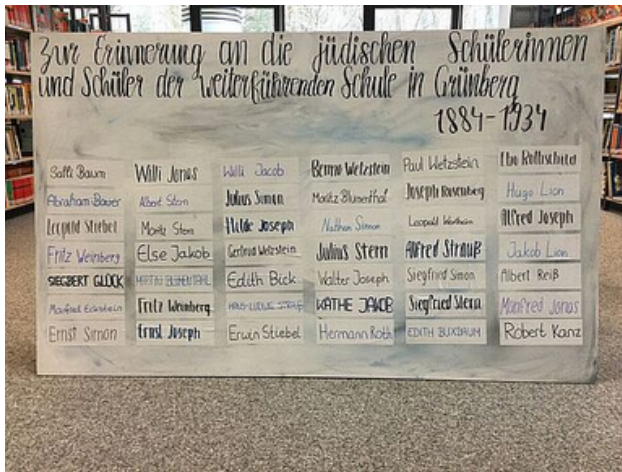 Zur Erinnerung an die jüdischen Schülerinnen
und Schüler der weiterführenden Schule in Grünberg
1884-1934
Salli Baum
Abraham Bauer
Leopold Stiebel
Fritz Weinberg
SIEGBERT GLÜCK
Manfred Eckstein
Ernst Simon
Willi Jonas
Albert Stern
Moritz Stern
Else Jakob
MARTIN BLUMENTHAL
Fritz Weinberg
Ernst Joseph
Willi Jacob
Julius Simon
Hilde Joseph
Gertrud Wetzstein
Edith Bick
HANS-LUDWIG
Erwin Stiebel
Benno Wetzstein
Moritz Blumenthal
Nathan Simon
Julius Stern
Walter Joseph
KÄTHE JAKOB
Hermann Roth
Paul Wetzstein
Joseph Rosenberg
Leopold
Alfred Strauß
Siegfried Simon
Siegfried Stern
EDITH BUXBAUM
Rothschild
Hugo Lion
Alfred Joseph
Jakob Lion
Albert Reiß
Manfred Jonas
Robert Kanz